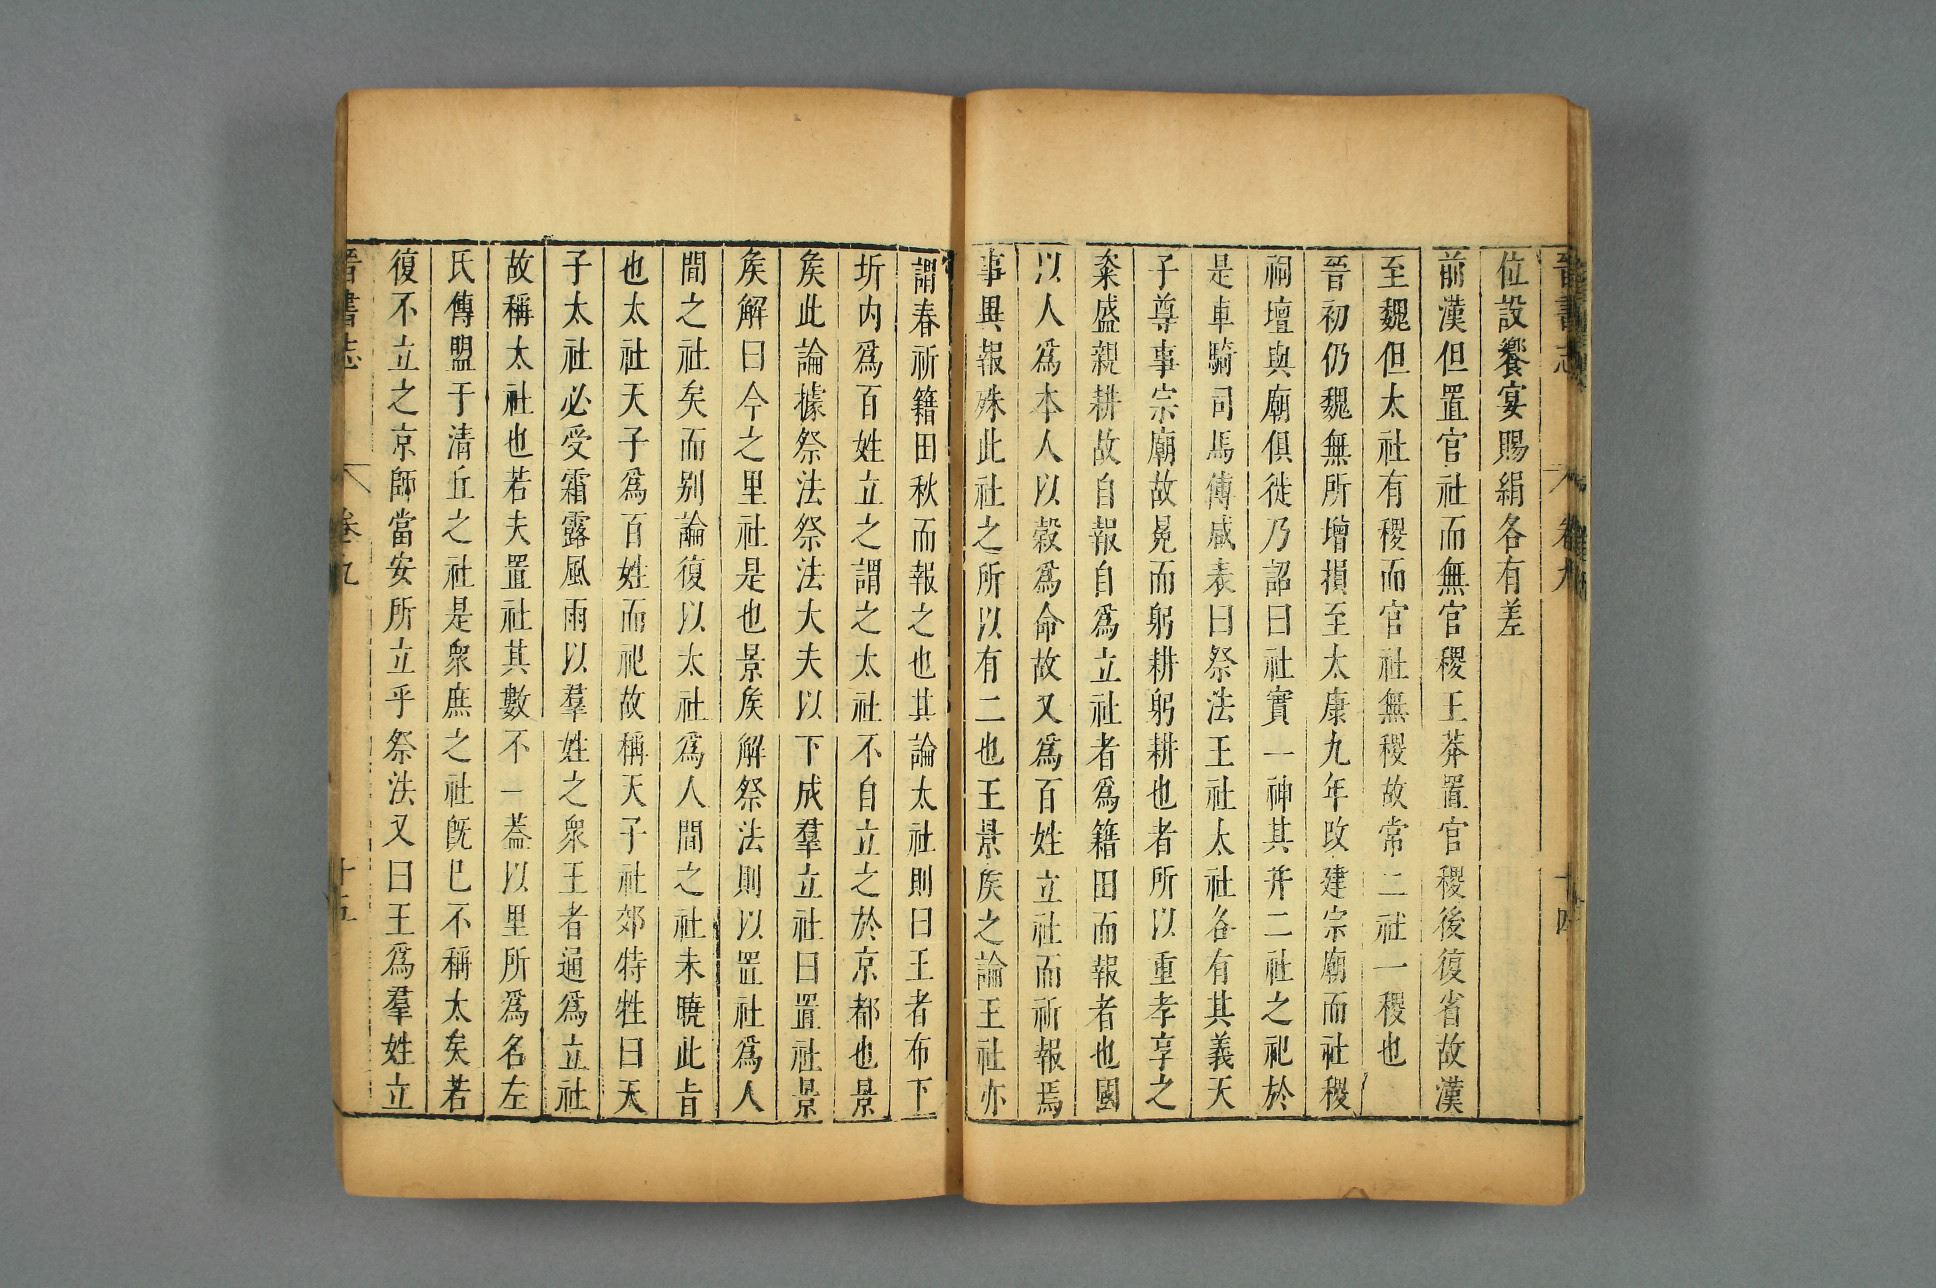 晉書志 卷九 十四
位設饗宴賜絹各有差
前漢但置官社而無官稷王莽置官稷後復省故漢
至魏但太社有稷而官社無稷故常二社一稷也
晉初仍魏無所增損至太康九年改建宗廟而社稷
祠壇與廟俱徙乃詔曰社實一神其幷二社之祀於
是車騎司馬傅咸表曰祭法王社太社各有其義天
子尊事宗廟故冕而躬耕躬耕也者所以重孝享之
粢盛親耕故自報自爲立社者爲籍田而報者也國
以人爲本人以穀爲命故又爲百姓立社而祈報焉
事異報殊此社之所以有二也王景矦之論王社亦
謂春祈籍田秋而報之也其論太社則曰王者布下
圻内爲百姓立之謂之太社不自立之於京都也景
矦此論據祭法祭法大夫以下成羣立社曰置社景
矦解曰今之里社是也景矦解祭法則以置社爲人
間之社矣而别論復以太社爲人間之社未曉此旨
也太社天子爲百姓而祀故稱天子社郊特牲曰天
子太社必受霜露風雨以羣姓之衆王者通爲立社
故稱太社也若夫置社其數不一葢以里所爲名左
氏傳盟于清丘之社是衆庶之社旣已不稱太矣若
復不立之京師當安所立乎祭法又曰王爲羣姓立
晉書志 卷九 十五